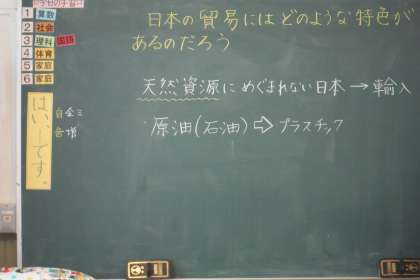 日本の貿易にはどのような特色が
あるのだろう
天然資源にめぐまれない日本→輸入
・原油(石油)⇨プラスチック
1 算数
2 社会
3 理科 国語
4 体育
5 家庭
6 家庭
はい、です。